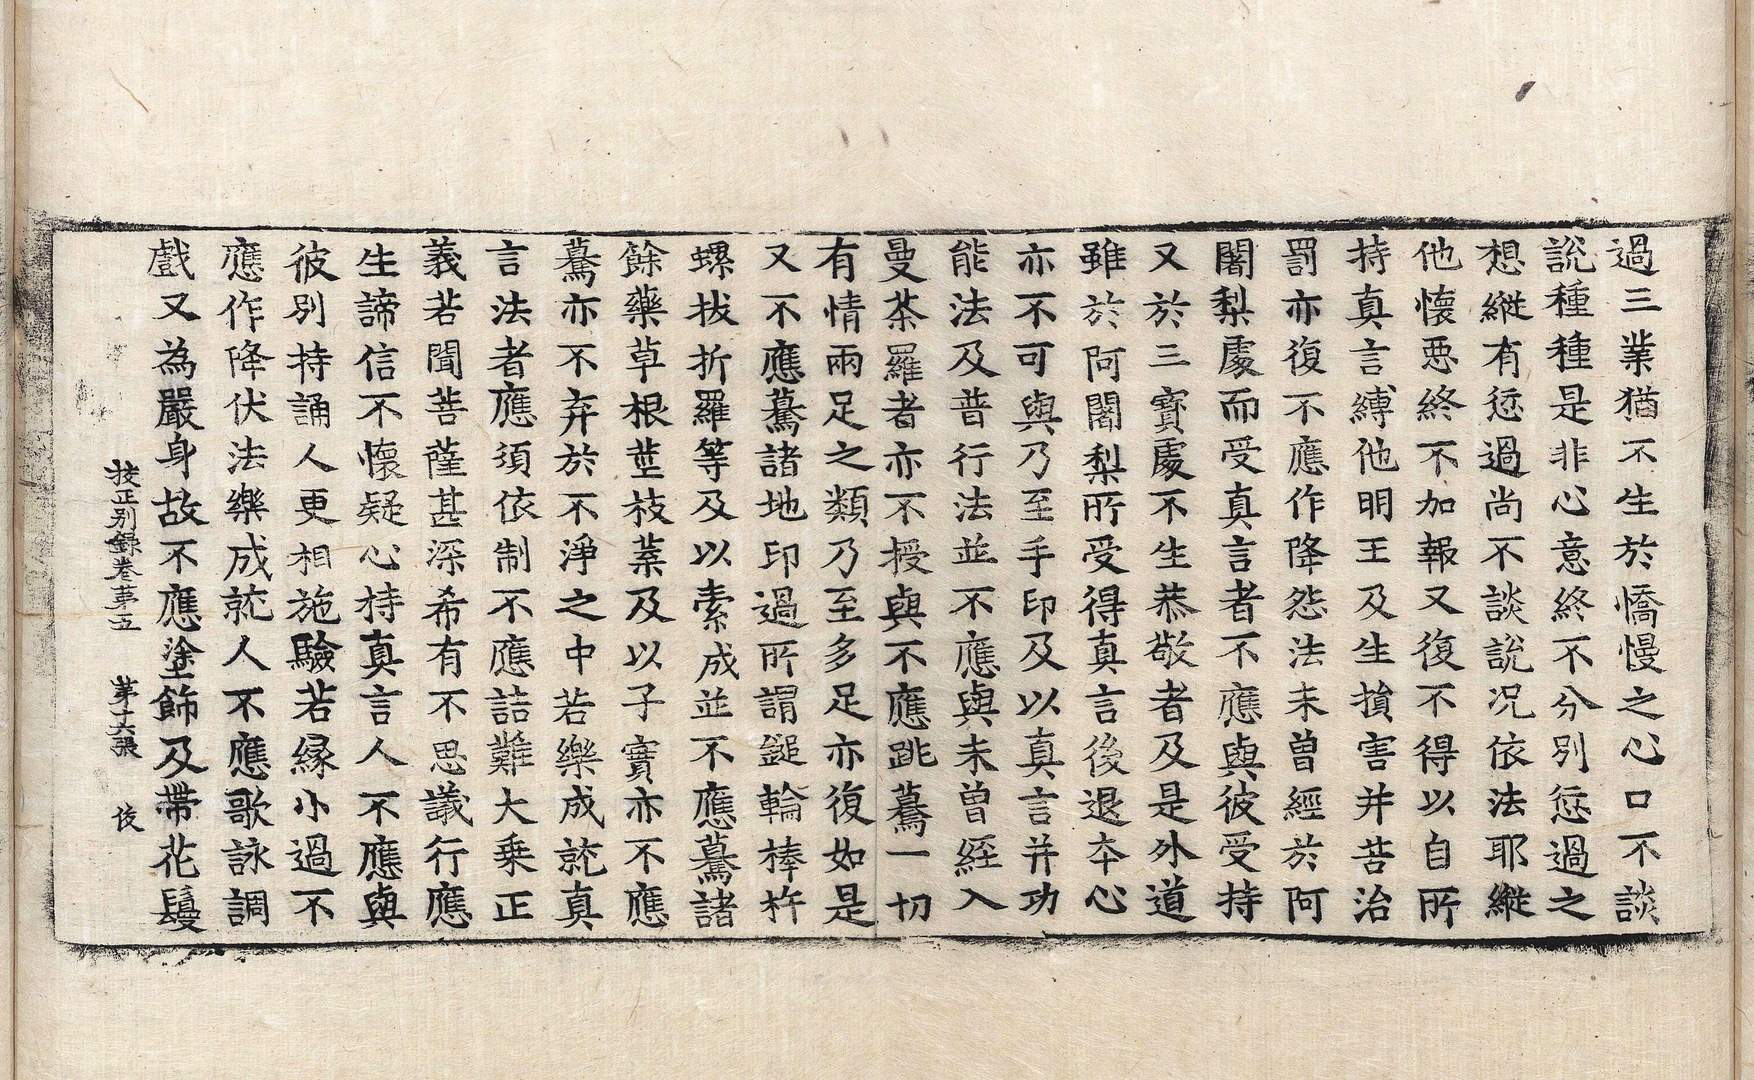 過三業猶不生於憍慢之心口不談
說種種是非心意終不分別愆過之
想縱有愆過尚不談說況依法耶縱
他懷惡終不加報又復不得以自所
持真言縛他明王及生損害并苦治
罰亦復不應作降怨法未曾經於阿
闍梨處而受真言者不應與彼受持
又於三寶處不生恭敬者及是外道
雖於阿闍梨所受得真言後退本心
亦不可與乃至手印及以真言并功
能法及普行法並不應與未曾經入
曼茶羅者亦不授與不應跳驀一切
有情兩足之類乃至多足亦復如是
又不應驀諸地印過所謂鎚輪棒杵
螺拔折羅等及以素成並不應驀諸
餘藥草根莖枝葉及以子實亦不應
驀亦不弃於不淨之中若樂成就真
言法者應須依制不應詰難大乘正
義若聞菩薩甚深希有不思議行應
生諦信不懷疑心持真言人不應與
彼別持誦人更相施驗若緣小過不
應作降伏法樂成就人不應歌詠調
戲又為嚴身故不應塗飾及帶花鬘
挍正別錄卷第五　第十六張　俊